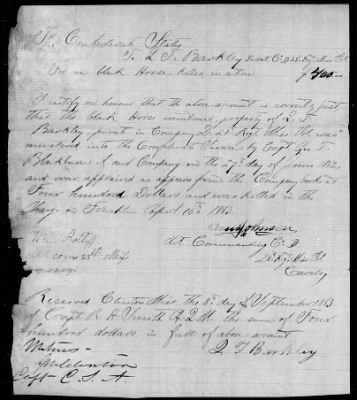 The Confederate States
To L. T. Barkley Private Co D 28 Regt Miss Cal
For one black Horse killed in action $400.00
I certify on honour that the above account is correct & just
that the black Horse mentioned property of L. T.
Barkley private in Company D 28 Regt Miss. Cav. was
mustered into the Confederate Service by Capt
Blackburn of our Company on the 27th day of June 1862
and was appraised as appears from the Company books at
Four hundred Dollars and was killed in the
Charge on Franklin April 10th 1863
Johnson
Lt Commanding Co. D
28 Regt Miss Cal
Cavalry
28th Miss
Received Clinton Miss. the 8th day of September 1863
of Capt R. H. A.Q.M. the sum of Four
hundred dollars in full of above account
L T Barkley
Witness
Capt C. S. A